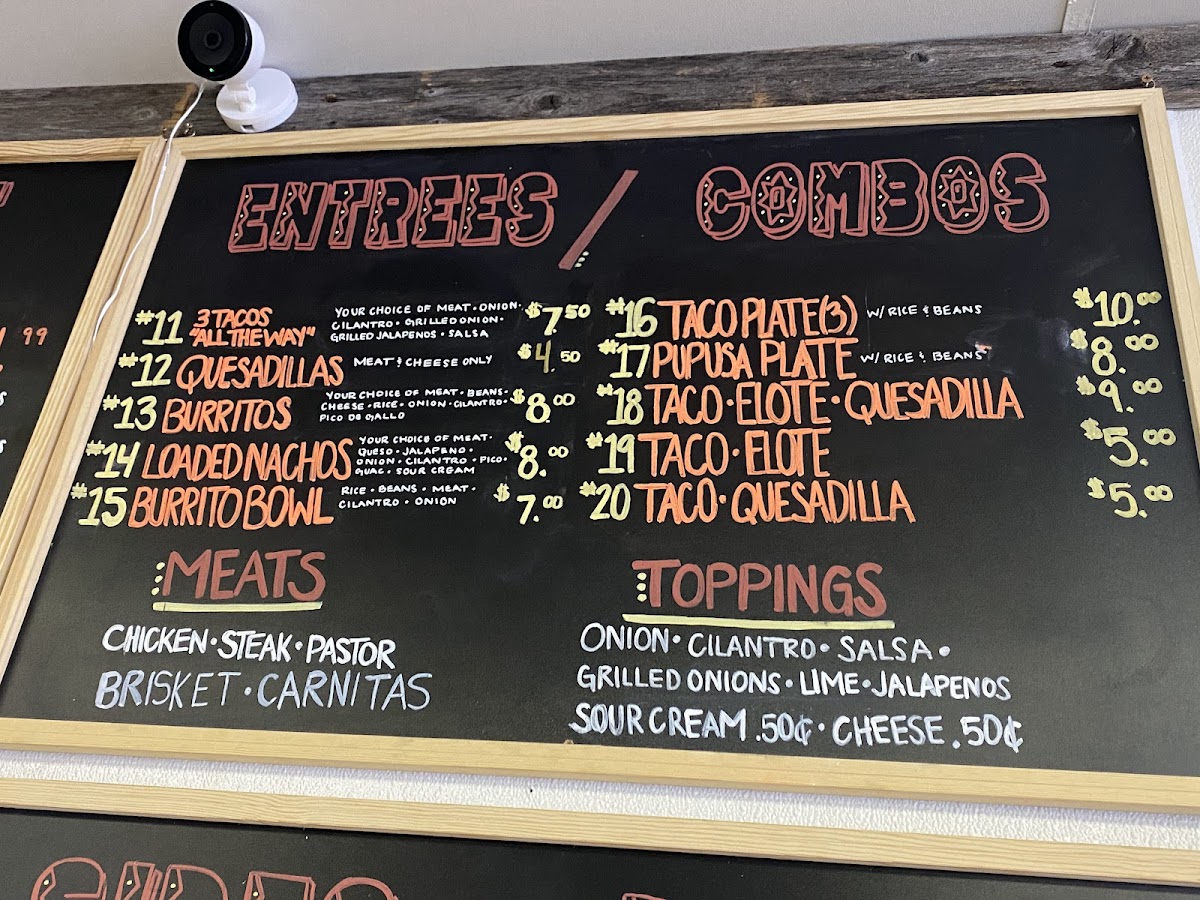 ENTREES / COMBOS
#11 3 TACOS "ALL THE WAY" $7.50
YOUR CHOICE OF MEAT · ONION ·
CILANTRO · GRILLED ONION ·
GRILLED JALAPENOS · SALSA
#12 QUESADILLAS MEAT & CHEESE ONLY $4.50
#13 BURRITOS $8.00
YOUR CHOICE OF MEAT · BEANS ·
CHEESE · RICE · ONION · CILANTRO ·
PICO DE GALLO
#14 LOADED NACHOS $8.00
YOUR CHOICE OF MEAT ·
QUESO · JALAPENO ·
ONION · CILANTRO · PICO ·
GUAC · SOUR CREAM
#15 BURRITO BOWL $7.00
RICE · BEANS · MEAT ·
CILANTRO · ONION
#16 TACO PLATE (3) W/ RICE & BEANS $10.00
#17 PUPUSA PLATE W/ RICE & BEANS $8.00
#18 TACO · ELOTE · QUESADILLA $9.00
#19 TACO · ELOTE $5.00
#20 TACO · QUESADILLA $5.00
MEATS
CHICKEN · STEAK · PASTOR
BRISKET · CARNITAS
TOPPINGS
ONION · CILANTRO · SALSA ·
GRILLED ONIONS · LIME · JALAPENOS
SOUR CREAM .50¢ · CHEESE .50¢
99